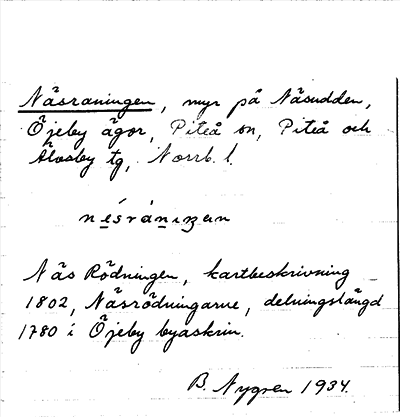 Näsraningen, myr på Näsudden,
Öjeby ägor, Piteå sn, Piteå och
Älvsby tg, Norrb. l.
Näs Rödningen, kartbeskrivning
1802, Näsrödningarne, delningslängd
1780 i Öjeby byaskrin.
B. Nygren 1934.